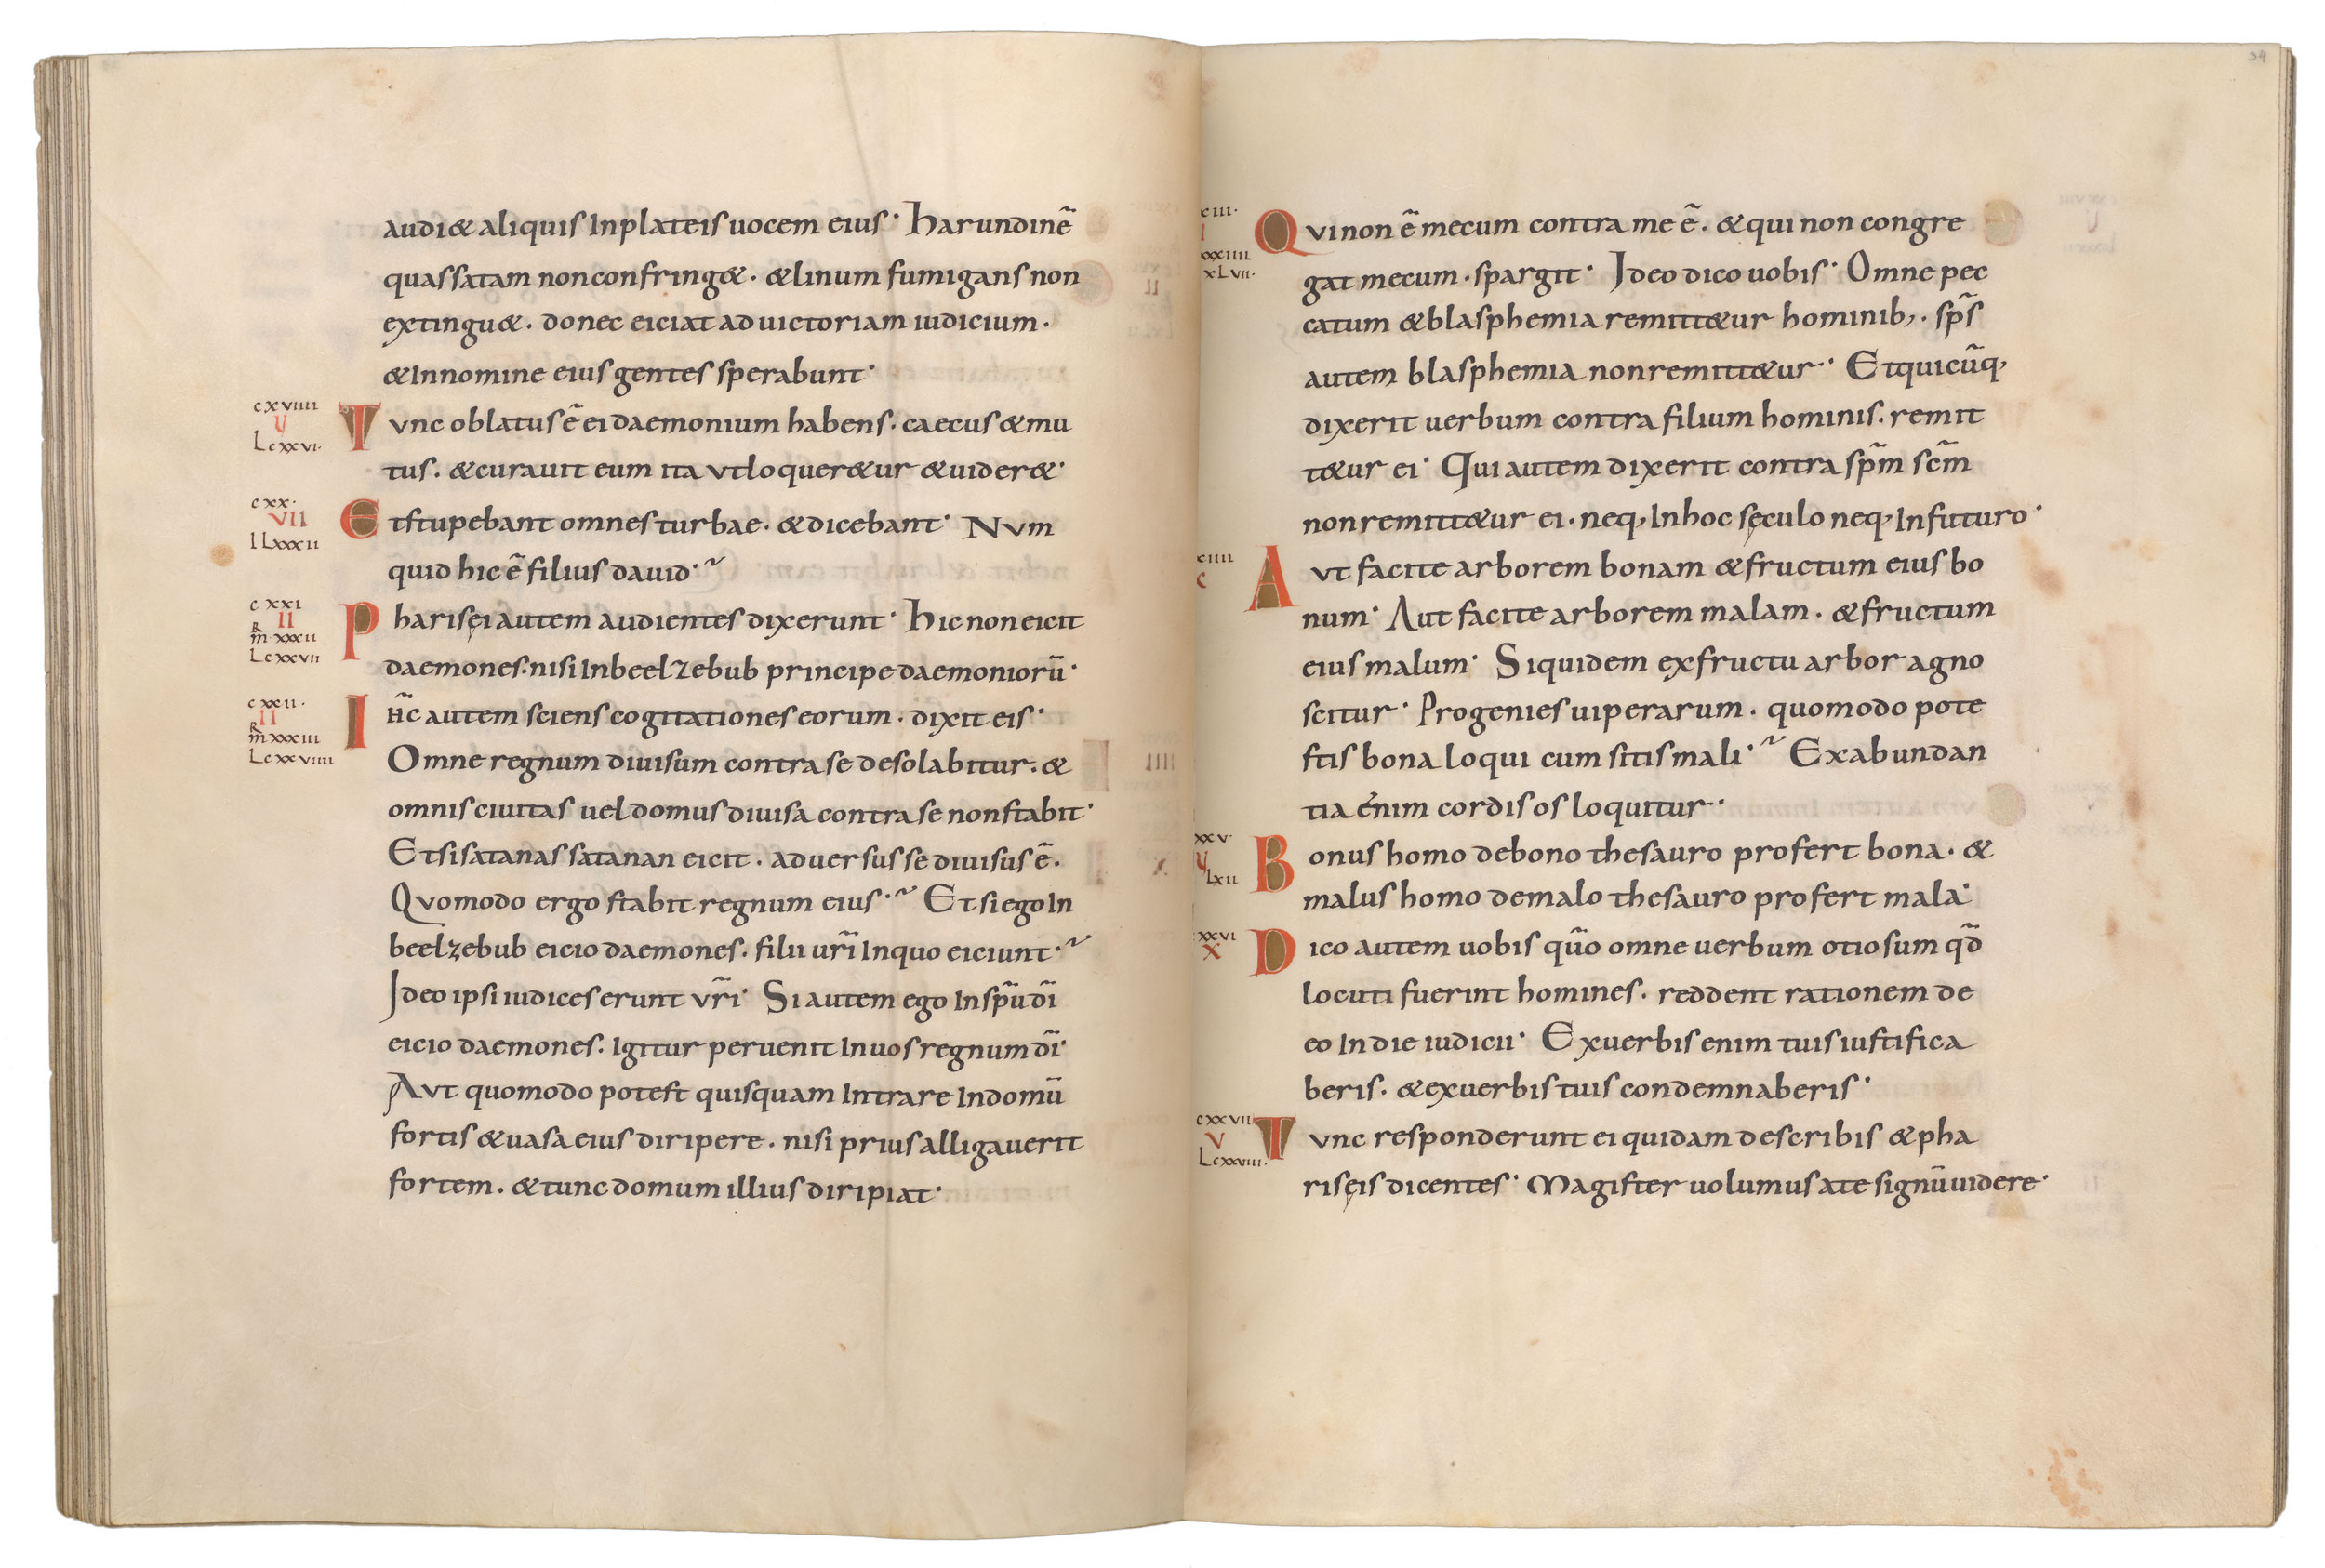 audi& aliquis Inplateis uocem eius· Harundinē
quassatam non confring&· &linum fumigans non
extingu&· donec eiciat ad uictoriam iudicium·
&Innomine eius gentes sperabunt·
cxviiii
v
Lcxxvi·
Tvnc oblatus ē ei daemonium habens· caecus &mu
tus· &curauit eum ita vtloquer&ur &uider&·
cxx·
VII
lLxxxii
Etstupebant omnes turbae· &dicebant· Nvm
quid hic ē filius dauid·~
cxxi
II
R
m̄ xxxii
Lcxxvii
Pharisęi autem audientes dixerunt· Hic non eicit
daemones· nisi Inbeelzebub principe daemoniorū·
cxxii·
II
R
m̄ xxxiii
Lcxxviiii
Ih̄c autem sciens cogitationes eorum· dixit eis·
Omne regnum diuisum contra se desolabitur· &
omnis ciuitas uel domus diuisa contra se non stabit·
Etsi satanas satanan eicit· aduersus se diuisus ē·
Qvomodo ergo stabit regnum eius·~ Et si ego In
beelzebub eicio daemones· filii ur̄i Inquo eiciunt·~
Ideo ipsi iudices erunt vr̄i· Si autem ego Insp̄u dī
eicio daemones· Igitur peruenit Inuos regnum dī·
Avt quomodo potest quisquam Intrare Indomū
fortis &uasa eius diripere· nisi prius alligauerit
fortem· &tunc domum illius diripiat·
ciii·
xxiiii
xLvii·
Qvi non ē mecum contra me ē· &qui non congre
gat mecum· spargit· Ideo dico uobis· Omne pec
catum &blasphemia remitt&ur hominib;· sp̄s
autem blasphemia non remitt&ur· Et quicūq;
dixerit uerbum contra filium hominis· remit
t&ur ei· Qui autem dixerit contra sp̄m sc̄m
non remitt&ur ei· neq; Inhoc sęculo neq; Infuturo·
ciiii
Avt facite arborem bonam &fructum eius bo
num· Aut facite arborem malam· &fructum
eius malum· Siquidem exfructu arbor agno
scitur· Progenies uiperarum· quomodo pote
stis bona loqui cum sitis mali·~ Exabundan
tia enim cordis os loquitur·
xxv·
v
Lxii
Bonus homo debono thesauro profert bona· &
malus homo demalo thesauro profert mala·
xxvi
X
Dico autem uobis qūo omne uerbum otiosum qd̄
locuti fuerint homines· reddent rationem de
eo Indie iudicii· Exuerbis enim tuis iustifica
beris· &exuerbis tuis condemnaberis·
cxxvii
V
Lcxxviii·
Tvnc responderunt ei quidam describis &pha
risęis dicentes· Magister uolumus ate signū uidere·